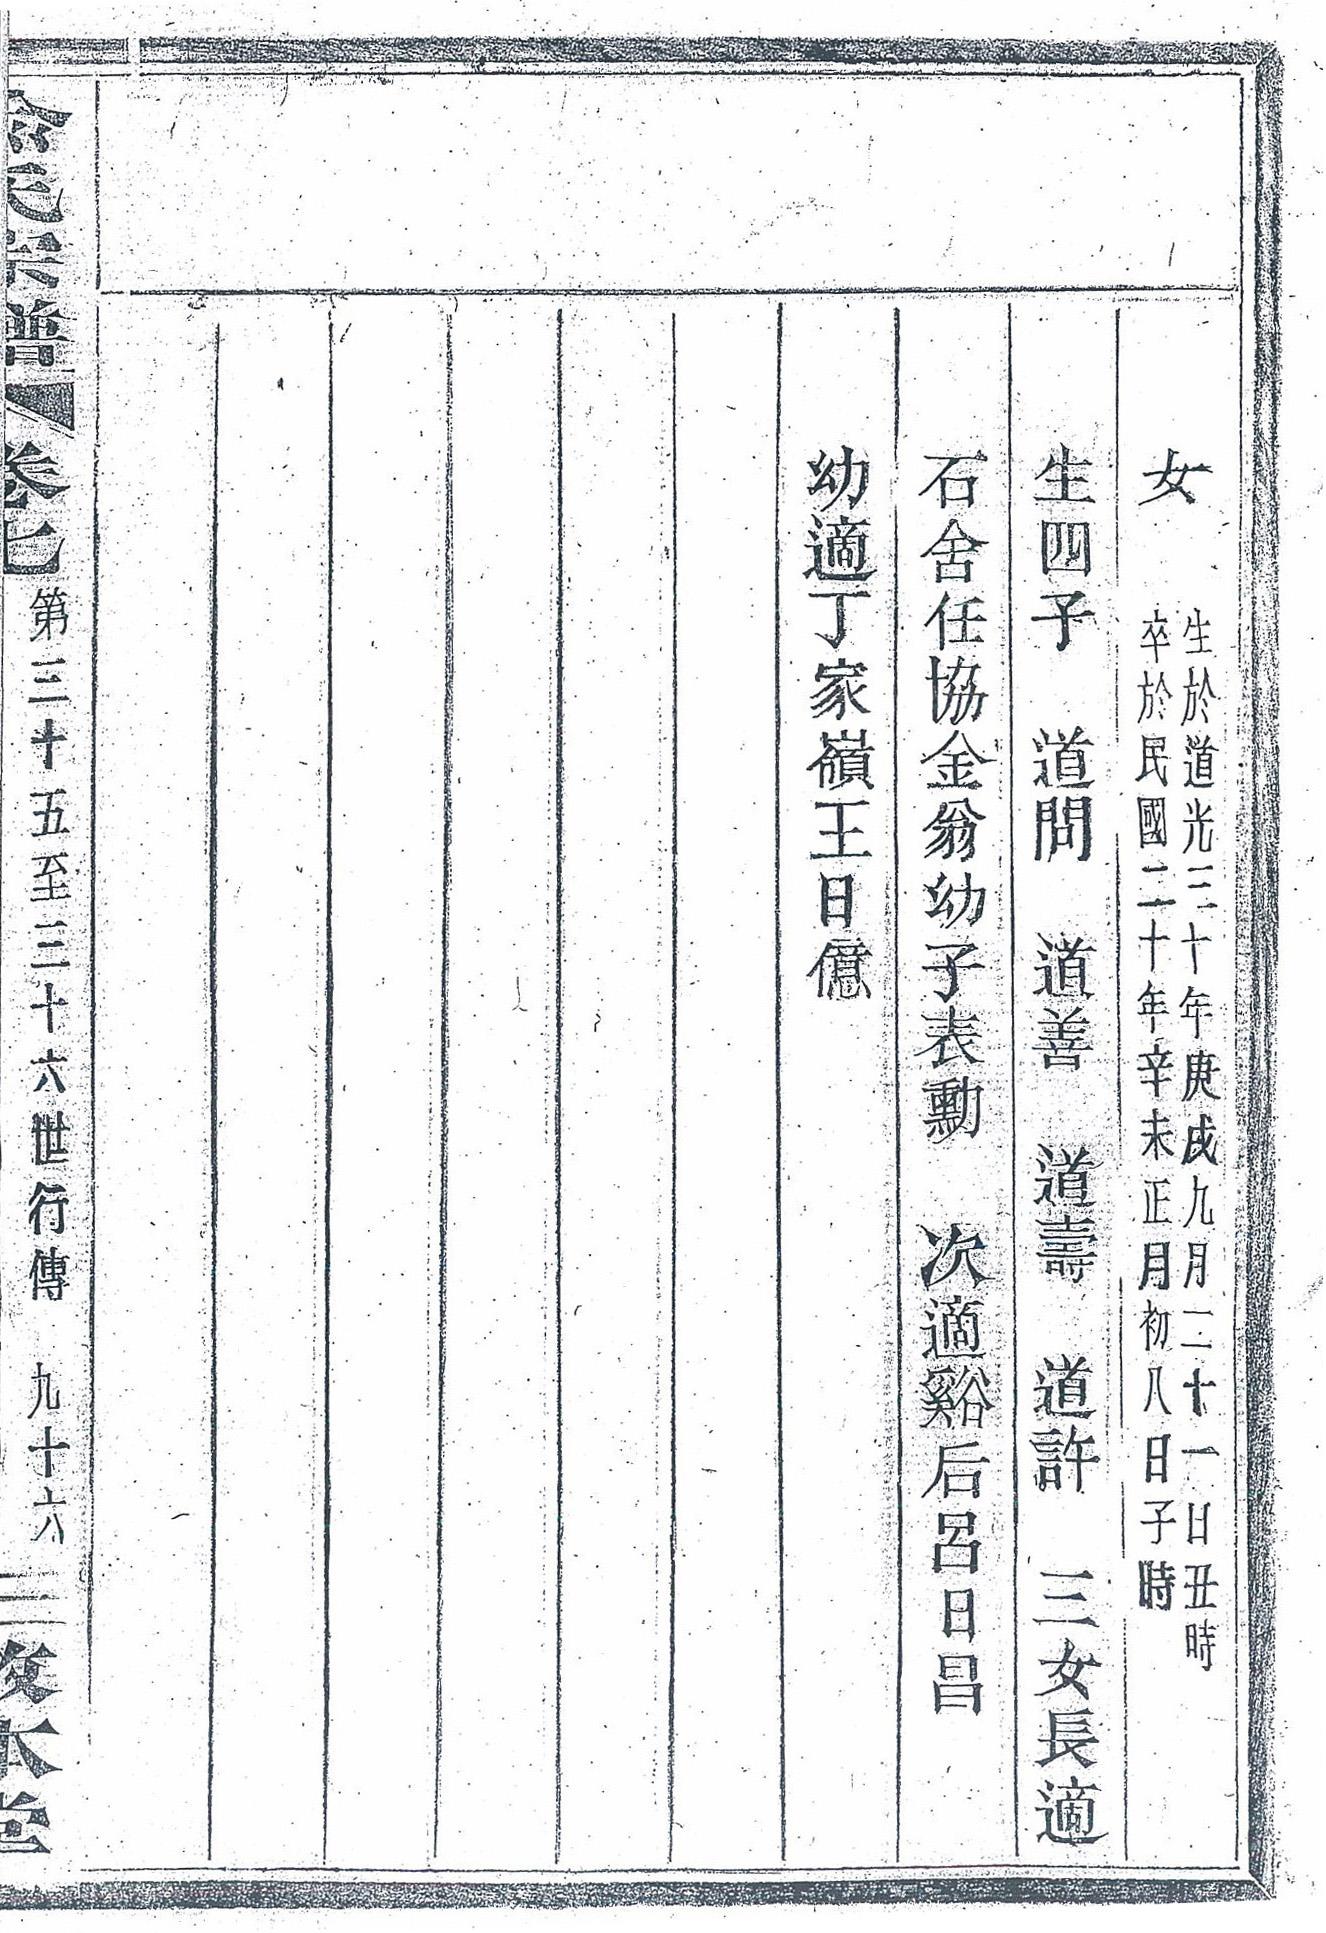 女
生於道光三十年庚戌九月二十一日丑時
卒於民國二十年辛未正月初八日子時
生四子 道問 道善 道壽 道許 三女長適
石舍任協金翁幼子表勳 次適谿后呂日昌
幼適丁家嶺王日億
氏宗譜 卷七 第三十五至三十六世行傳 九十六 本堂